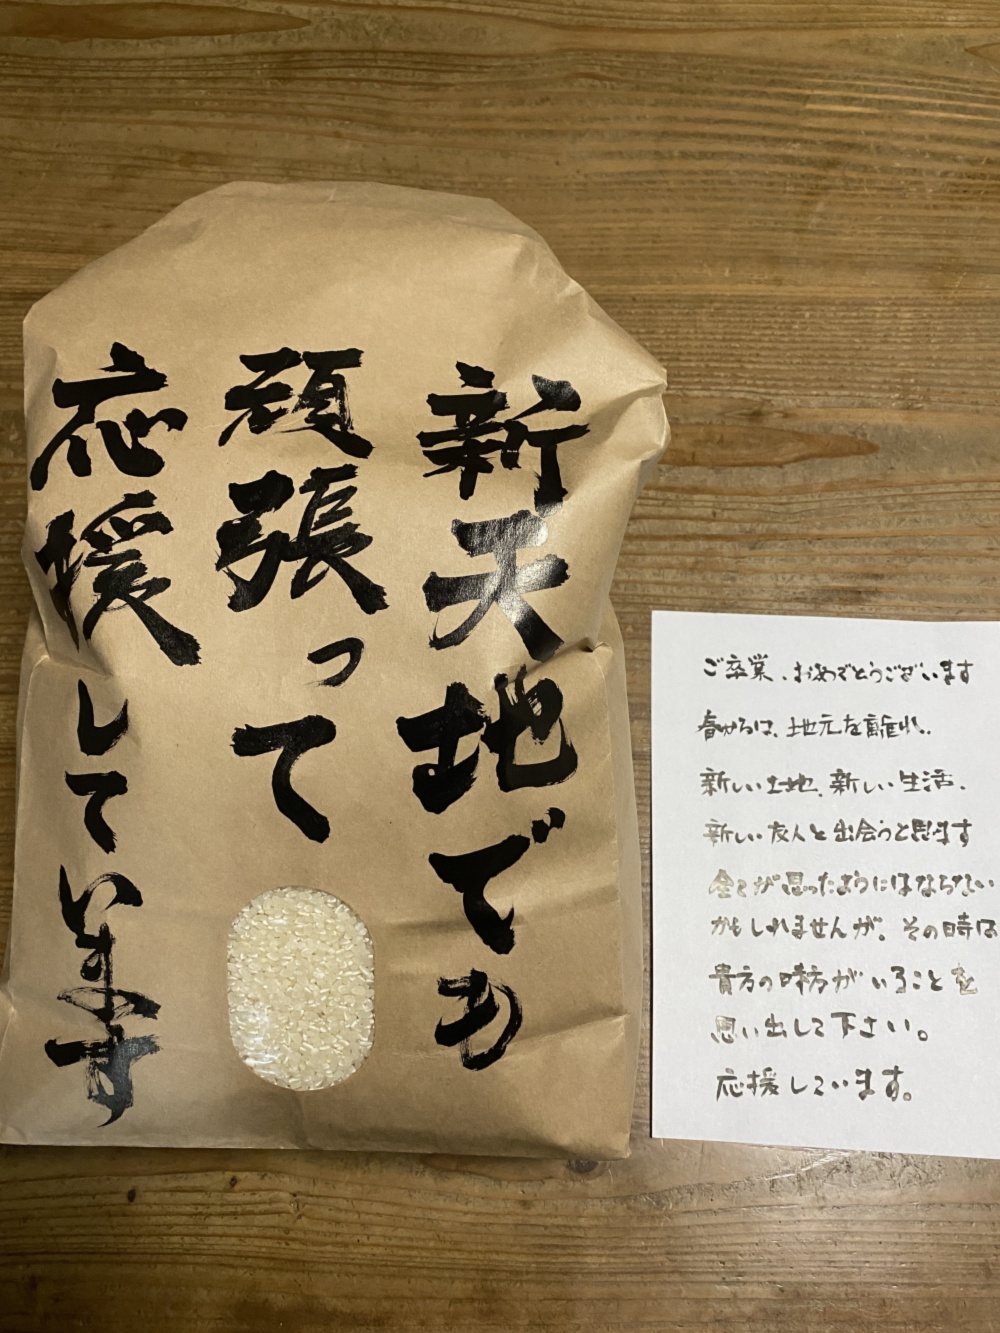 新天地でも
頑張って
応援しています
ご卒業、おめでとうございます
春からは、地元を離れ、
新しい土地、新しい生活、
新しい友人と出会うと思います
全てが思ったようにはならない
かもしれませんが、その時は
貴方の味方がいることを
思い出して下さい。
応援しています。